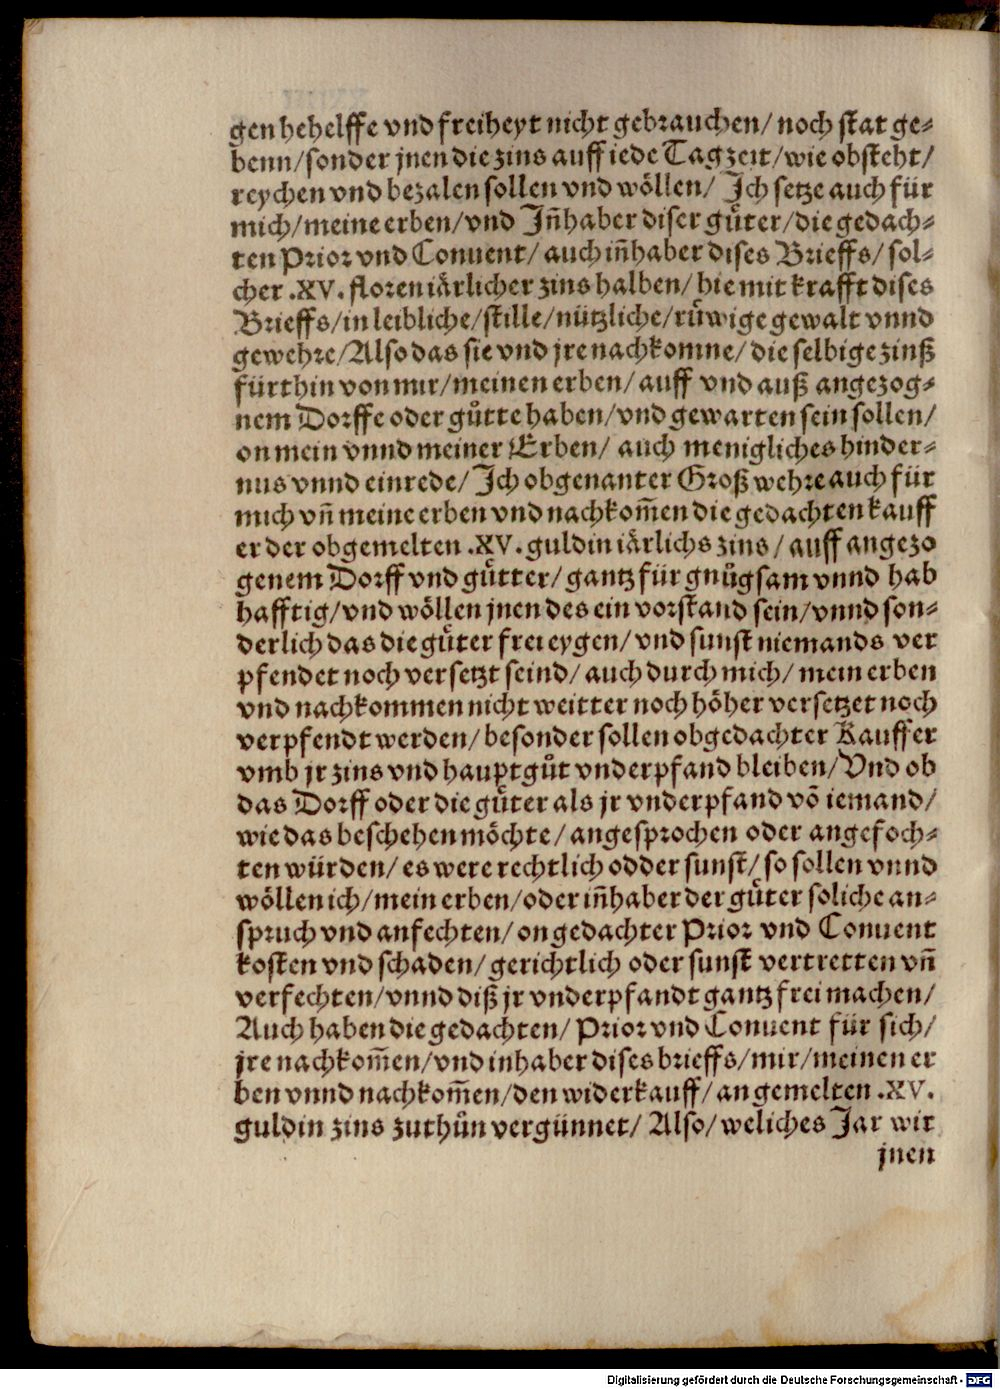 gen hehelffe vnd freiheyt nicht gebrauchen/ noch stat ge⸗
benn/sonder jnen die zins auff iede Tagzeit/wie obsteht/
reychen vnd bezalen sollen vnd wöllen/ Ich setze auch für
mich/meine erben/vnd Iñhaber diser gůter/die gedach⸗
ten Prior vnd Conuent/ auch iñhaber dises Brieffs/ sol⸗
cher .XV. floren iärlicher zins halben/ hie mit krafft dises
Brieffs/in leibliche/stille/nützliche/rüwige gewalt vnnd
gewehre/Also das sie vnd jre nachkomne/ die selbige zinß
fürthin von mir/meinen erben/ auff vnd auß angezog⸗
nem Dorffe oder gůtte haben/vnd gewarten sein sollen/
on mein vnnd meiner Erben/ auch menigliches hinder⸗
nus vnnd einrede/ Ich obgenanter Groß wehre auch für
mich vñ meine erben vnd nachkom̃en die gedachten kauff
er der obgemelten .XV. guldin iärlichs zins/ auff angezo
genem Dorff vnd gůtter/ gantz für gnůgsam vnnd hab
hafftig/vnd wöllen jnen des ein vorstand sein/vnnd son⸗
derlich das die gůter frei eygen/ vnd sunst niemands ver
pfendet noch versetzt seind/ auch durch mich/ mein erben
vnd nachkommen nicht weitter noch höher versetzet noch
verpfendt werden/ besonder sollen obgedachter Kauffer
vmb jr zins vnd hauptgůt vnderpfand bleiben/Vnd ob
das Dorff oder die gůter als jr vnderpfand võ iemand/
wie das beschehen möchte/ angesprochen oder angefoch⸗
ten würden/ es were rechtlich odder sunst/ so sollen vnnd
wöllen ich/mein erben/oder iñhaber der gůter soliche an⸗
spruch vnd anfechten/ on gedachter Prior vnd Conuent
kosten vnd schaden/ gerichtlich oder sunst vertretten vñ
verfechten/vnnd diß jr vnderpfandt gantz frei machen/
Auch haben die gedachten/ Prior vnd Conuent für sich/
jre nachkom̃en/vnd inhaber dises brieffs/mir/meinen er
ben vnnd nachkom̃en/den widerkauff/ an gemelten .XV.
guldin zins zuthůn vergünnet/ Also/ weliches Jar wir
jnen
Digitalisierung gefördert durch die Deutsche Forschungsgemeinschaft - DFG